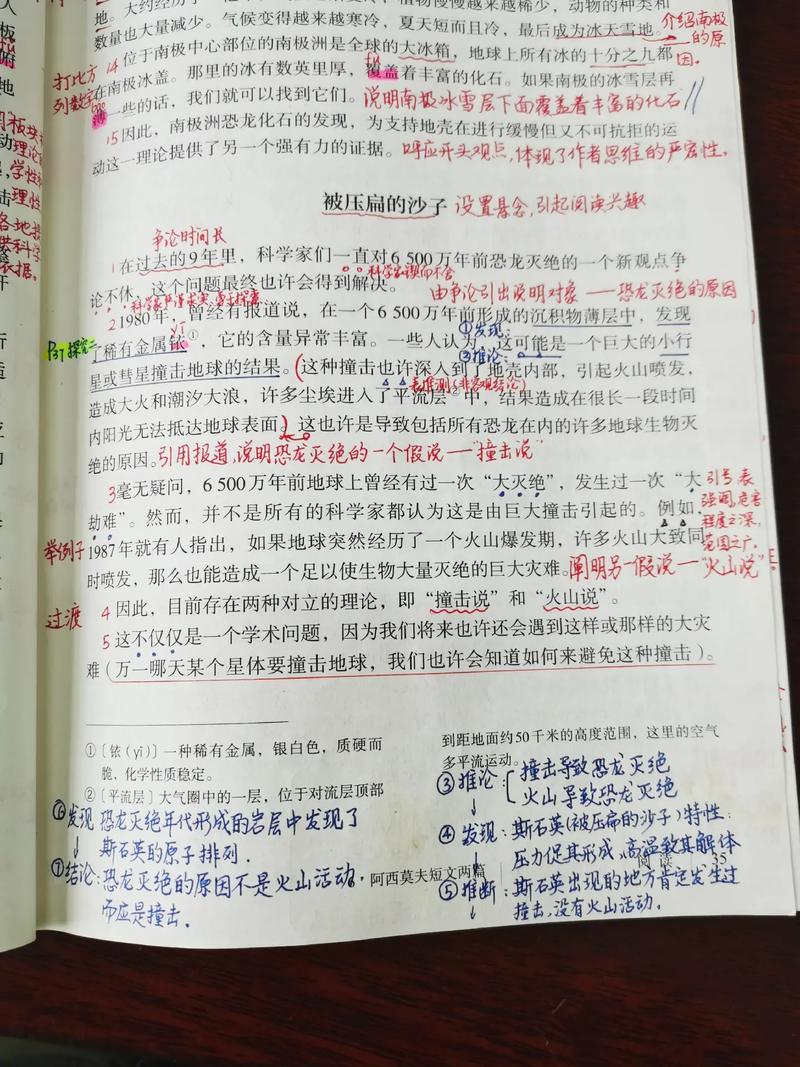 地。大约经历了
植物慢慢越来越稀少，动物的种类和
数量也大量减少。气候变得越来越寒冷，夏天短而且冷，最后成为冰天雪地。
介绍南极的原因。
打比方
列数字
14 位于南极中心部位的南极洲是全球的大冰箱，地球上所有冰的十分之九都
在南极冰盖。那里的冰有数英里厚，覆盖着丰富的化石。如果南极的冰雪层再
薄一些的话，我们就可以找到它们。说明南极冰雪层下面覆盖着丰富的化石//
15 因此，南极洲恐龙化石的发现，为支持地壳在进行缓慢但又不可抗拒的运
动这一理论提供了另一个强有力的证据。呼应开头观点，体现了作者思维的严密性。
被压扁的沙子 设置悬念，引起阅读兴趣
争论时间长
1 在过去的9年里，科学家们一直对6 500万年前恐龙灭绝的一个新观点争
论不休，这个问题最终也许会得到解决。
由争论引出说明对象——恐龙灭绝的原因
2 1980年，曾经有报道说，在一个6 500万年前形成的沉积物薄层中，发现
P37探究二
yī
①发现：
了稀有金属铱①，它的含量异常丰富。一些人认为，这可能是一个巨大的小行
②推论：
星或彗星撞击地球的结果。（这种撞击也许深入到了地壳内部，引起火山喷发，
表推测（非客观结论）
造成大火和潮汐大浪，许多尘埃进入了平流层②中，结果造成在很长一段时间
内阳光无法抵达地球表面）。这也许是导致包括所有恐龙在内的许多地球生物灭
绝的原因。引用报道，说明恐龙灭绝的一个假说——“撞击说”
3 毫无疑问，6 500万年前地球上曾经有过一次“大灭绝”，发生过一次“大
劫难”。然而，并不是所有的科学家都认为这是由巨大撞击引起的。例如，
引号，表
强调，危害
程度之深，
范围之广。
举例子
1987年就有人指出，如果地球突然经历了一个火山爆发期，许多火山大致同
时喷发，那么也能造成一个足以使生物大量灭绝的巨大灾难。阐明另一假说——“火山说”
过渡
4 因此，目前存在两种对立的理论，即“撞击说”和“火山说”。
5 这不仅仅是一个学术问题，因为我们将来也许还会遇到这样或那样的大灾
难（万一哪天某个星体要撞击地球，我们也许会知道如何来避免这种撞击）。
①〔铱（yī）〕一种稀有金属，银白色，质硬而
脆，化学性质稳定。
②〔平流层〕大气圈中的一层，位于对流层顶部
到距地面约50千米的高度范围，这里的空气
多平流运动。
③推论：撞击导致恐龙灭绝
火山导致恐龙灭绝
④发现：斯石英（被压扁的沙子）特性：
压力促其形成、高温致其解体
⑤推断：斯石英出现的地方肯定发生过
撞击，没有火山活动。
⑥发现 恐龙灭绝年代形成的岩层中发现了
斯石英的原子排列.
⑦结论：恐龙灭绝的原因不是火山活动.
而应是撞击.
阿西莫夫短文两篇
阅读 35